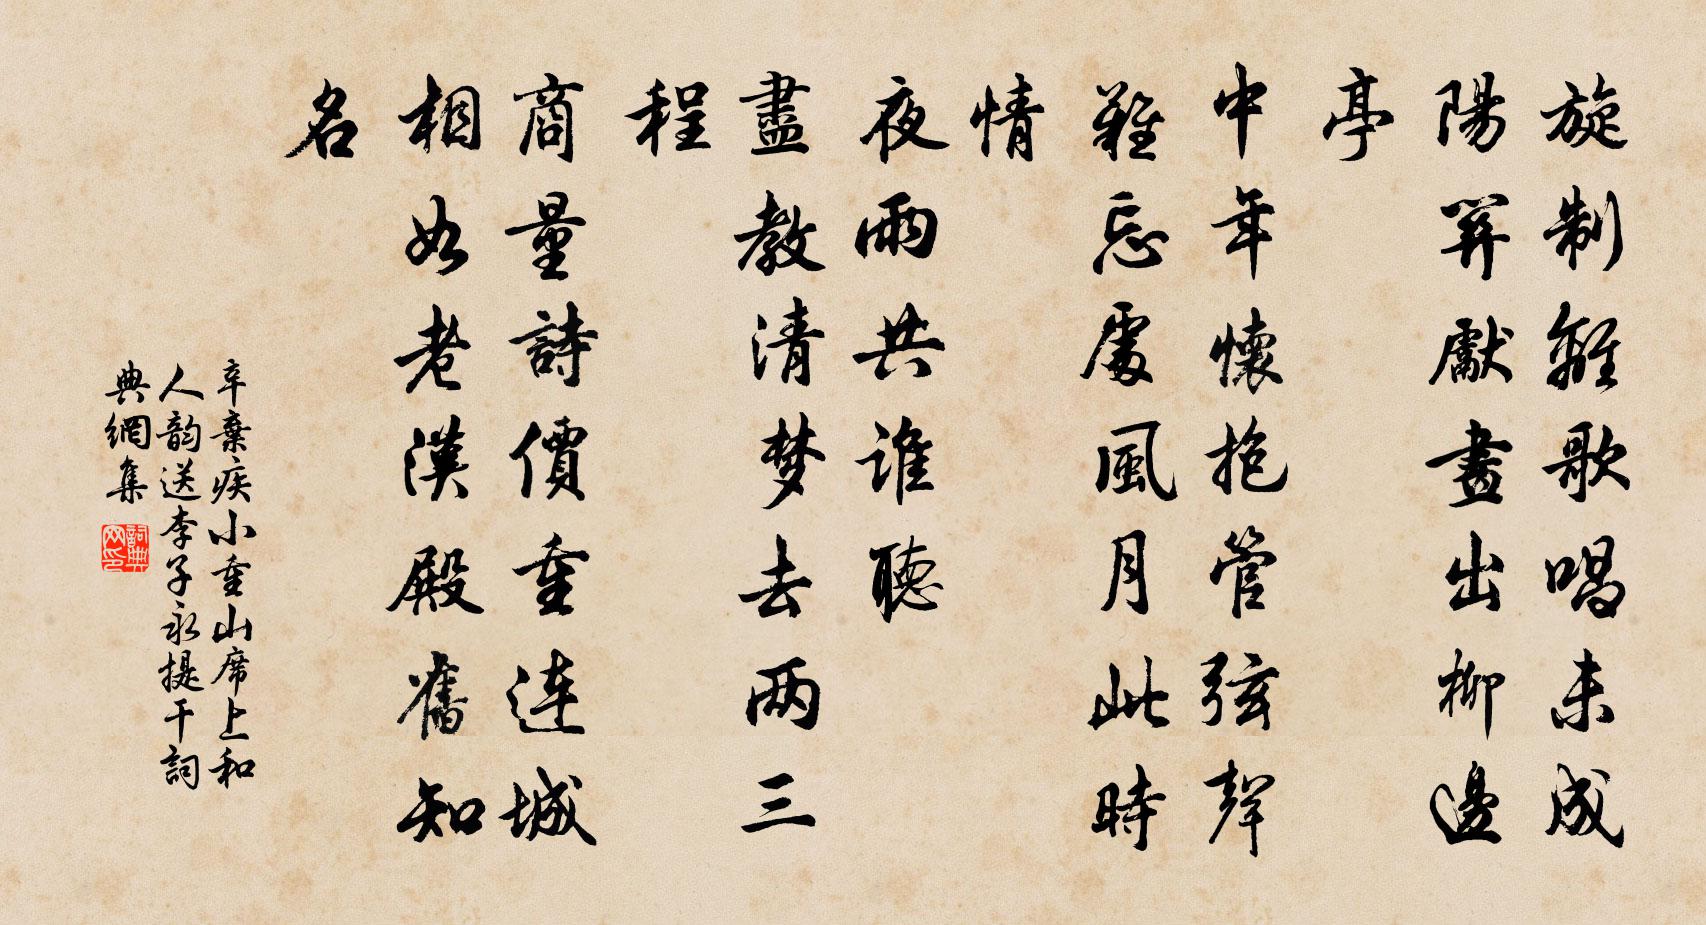 旋制離歌唱未成
陽關獻畫出柳邊
亭
中年懷抱管弦聲
難忘處風月此時
情
夜雨共誰聽
盡教清梦去两三
程
商量詩價重連城
相如老漢殿舊知
名
辛棄疾小重山席上和
人韵送李子永提干詞
典網集
詞典
网印